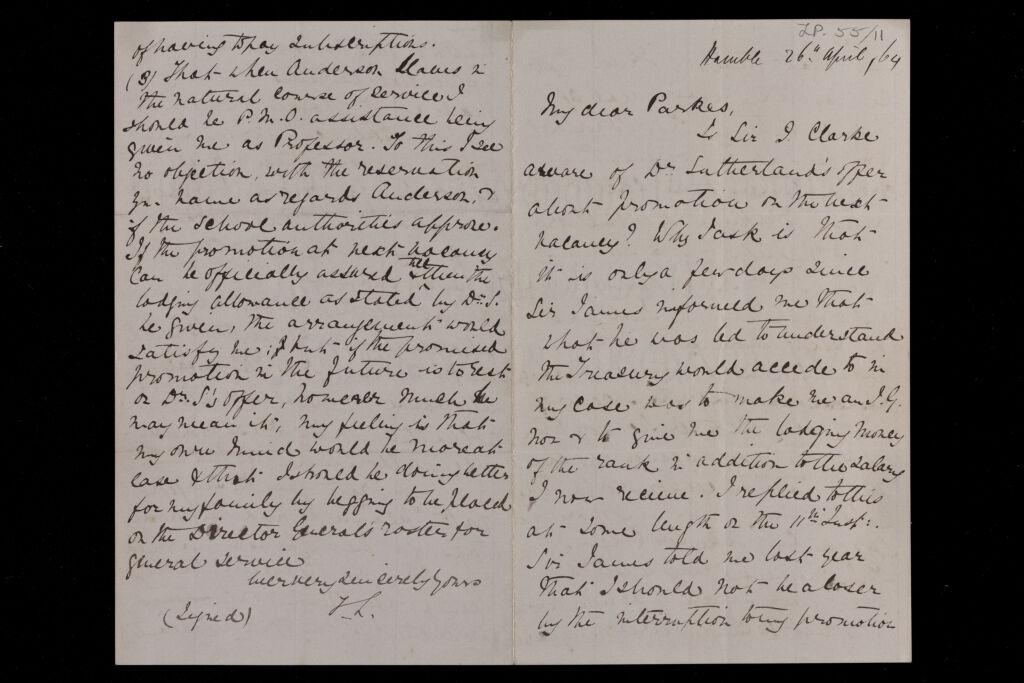 LP. 55/11
Hamble 26th April /64
My dear Parkes,
Is Sir J. Clarke
aware of Dr Sutherland's offer
about promotion on the next
vacancy? Why I ask is that
it is only a few days since
Sir James informed me that
what he was led to understand
the Treasury would accede to in
my case was to make me an I.G.
now & to give me the lodging money
of the rank in addition to the salary
I now receive. I replied to this
at some length on the 11th Inst:.
Sir James told me last year
that I should not be a loser
by the interruption to my promotion
of having to pay Subscriptions.
(3) That when Anderson leaves in
the natural course of service I
should be P.M.O. assistance being
given me as Professor. To this I see
no objection, with the reservation
name as regards Anderson, &
if the School authorities approve.
If the promotion at next vacancy
can be officially assured & till then the
lodging allowance as stated by Dr. S.
be given, the arrangement would
satisfy me; but if the promised
promotion in the future is to rest
on Dr. S's offer, however much he
may mean it, my feeling is that
my own mind would be more at
ease & that I should be doing better
for my family by begging to be placed
on the Director General's roster for
general service
Ever very sincerely yours
(Signed) T. L.